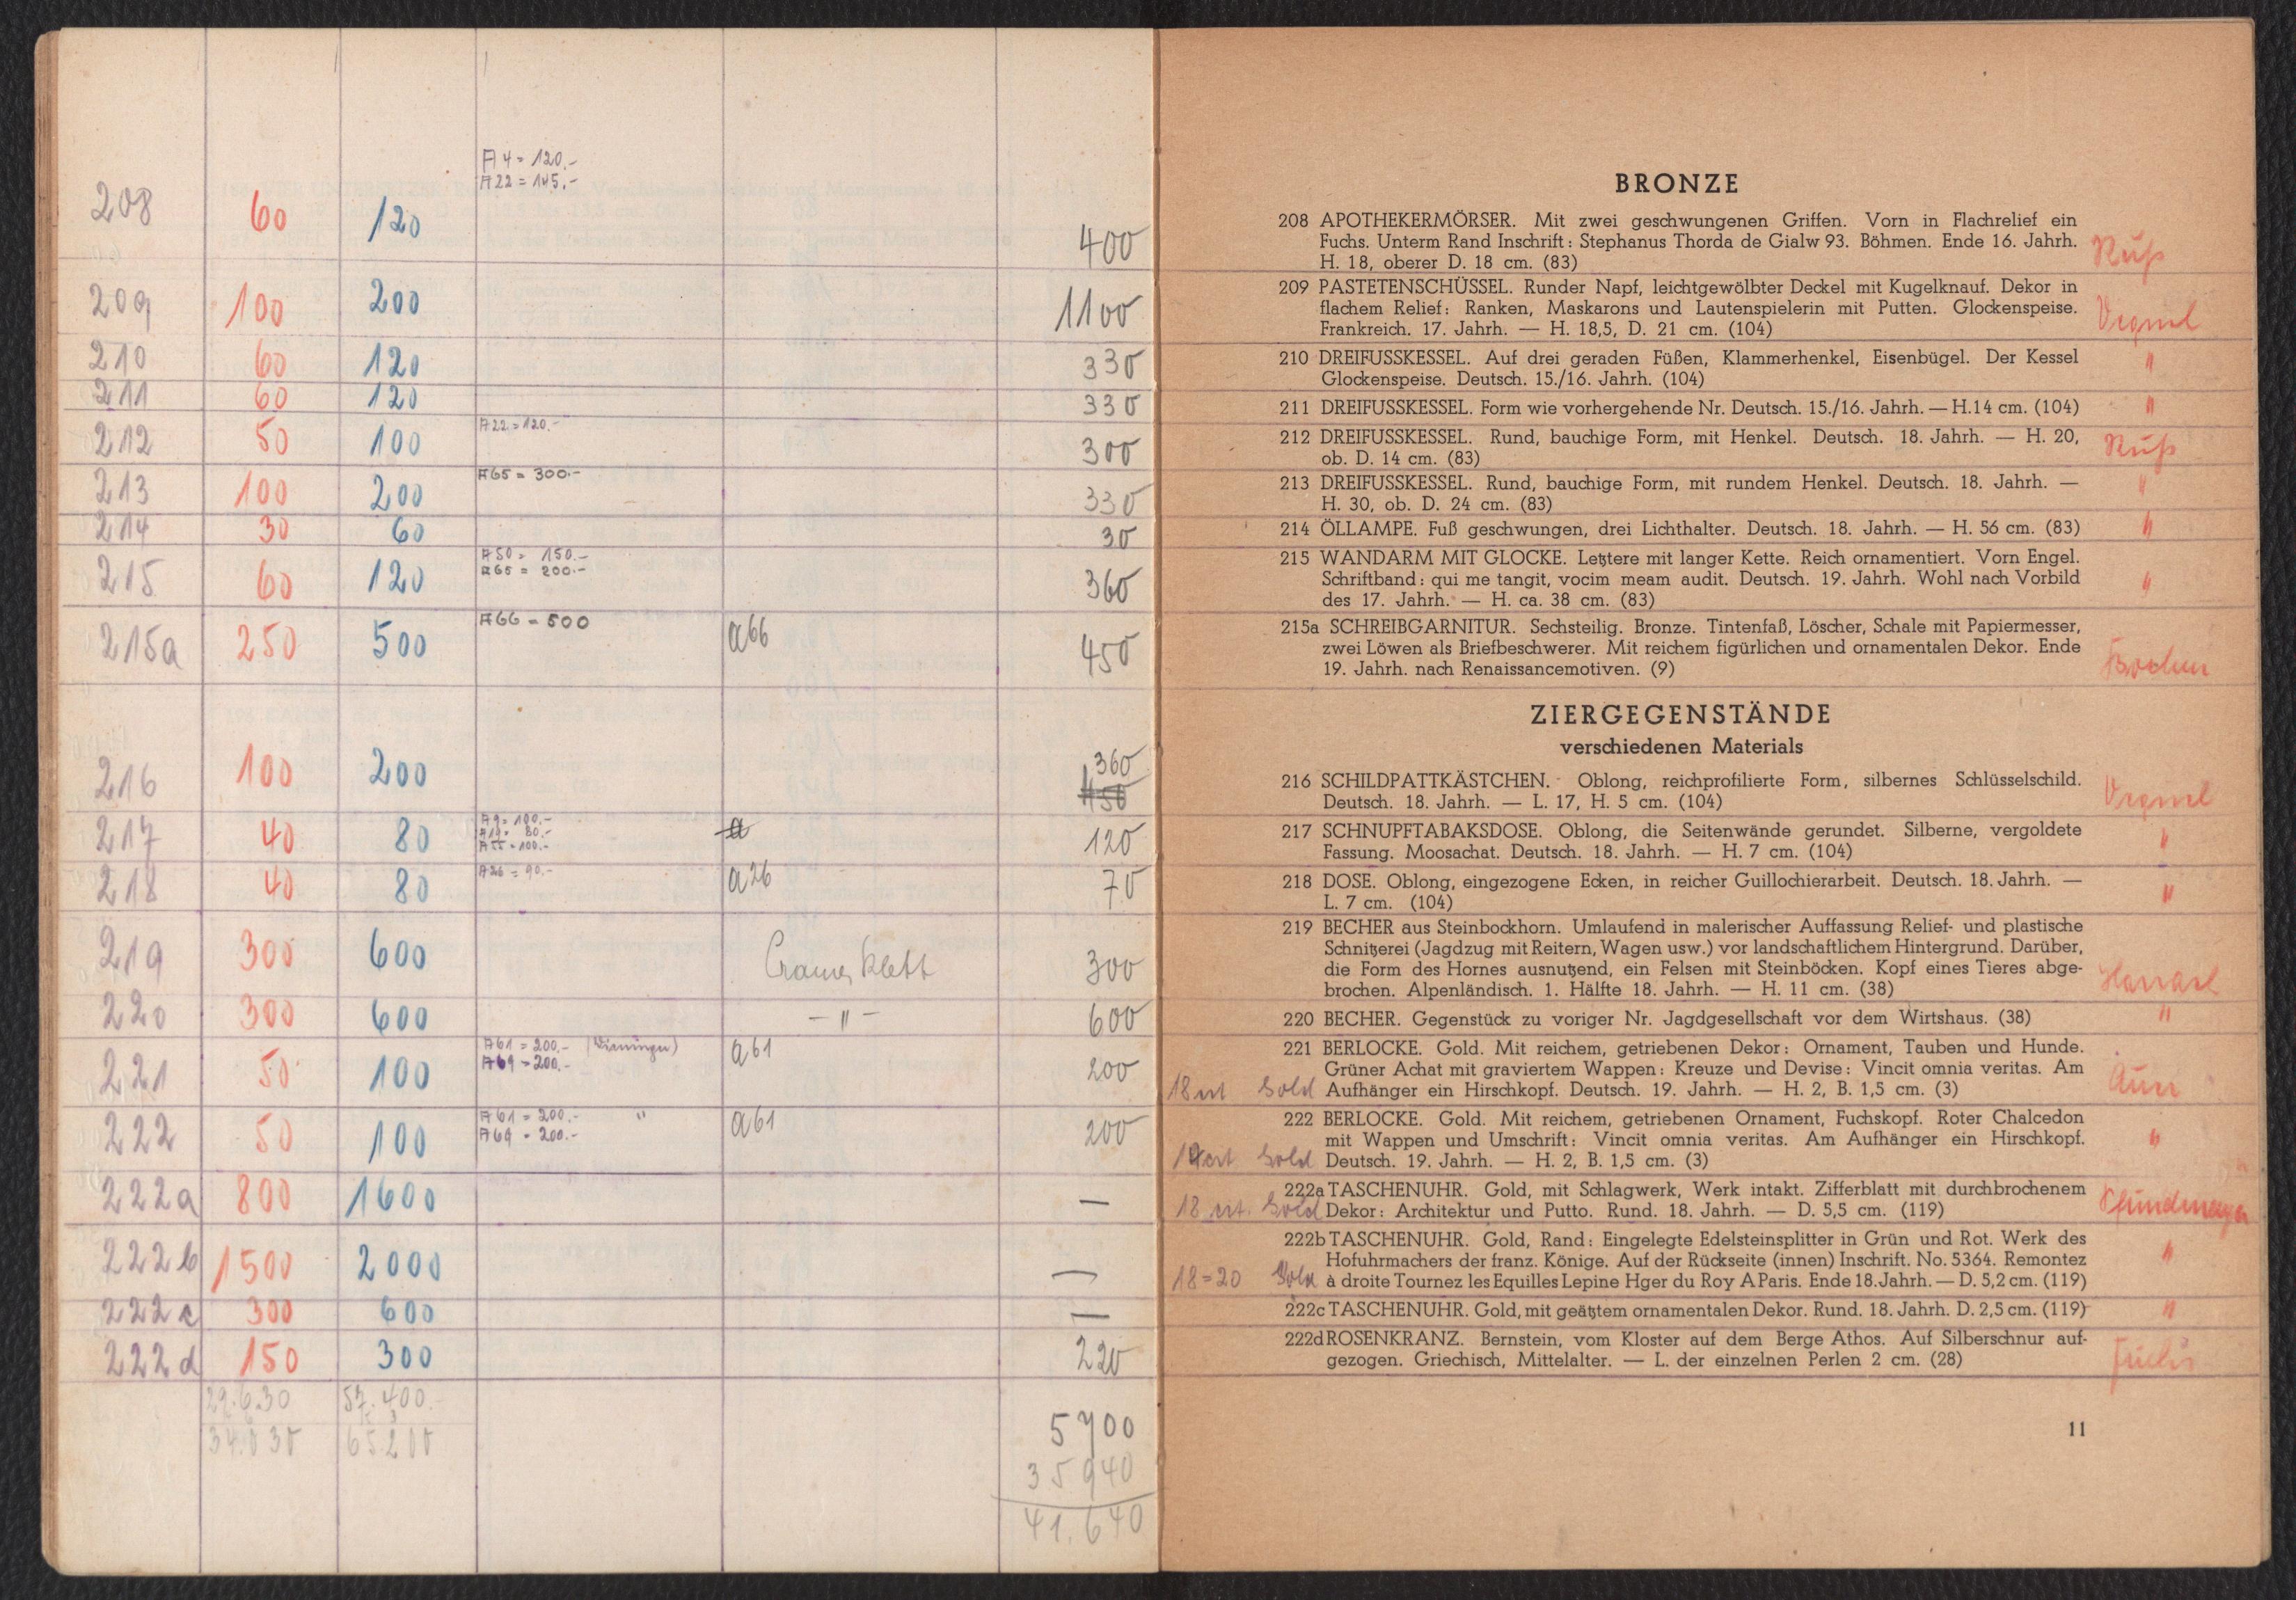 A4 = 120.-
A22 = 145.-
208 60 120 400
209 100 200 1100
210 60 120 330
211 60 120 330
A22 = 120.-
212 50 100 300
A65 = 300.-
213 100 200 330
214 30 60 30
A50 = 150.-
A65 = 200.-
215 60 120 360
215a 250 500 A66 = 500 a66 450
216 100 200 360
450
A9 = 100.-
A19 = 80.-
A55 = 100.-
217 40 80 a 120
218 40 80 A26 = 90.- a26 70
219 300 600 Cramer Klett 300
220 300 600 — " — 600
A61 = 200.-
A69 = 200.-
221 50 100 a61 200
A61 = 200.- "
A69 = 200.-
222 50 100 a61 200
222a 800 1600 —
222b 1500 2000 —
222c 300 600 —
222d 150 300 220
29.630 57.400.-
65200
5700
35940
41.640
BRONZE
208 APOTHEKERMÖRSER. Mit zwei geschwungenen Griffen. Vorn in Flachrelief ein
Fuchs. Unterm Rand Inschrift: Stephanus Thorda de Gialw 93. Böhmen. Ende 16. Jahrh.
H. 18, oberer D. 18 cm. (83)
Ruß
209 PASTETENSCHÜSSEL. Runder Napf, leichtgewölbter Deckel mit Kugelknauf. Dekor in
flachem Relief: Ranken, Maskarons und Lautenspielerin mit Putten. Glockenspeise.
Frankreich. 17. Jahrh. — H. 18,5, D. 21 cm. (104)
210 DREIFUSSKESSEL. Auf drei geraden Füßen, Klammerhenkel, Eisenbügel. Der Kessel
Glockenspeise. Deutsch. 15./16. Jahrh. (104)
"
211 DREIFUSSKESSEL. Form wie vorhergehende Nr. Deutsch. 15./16. Jahrh. — H. 14 cm. (104)
"
212 DREIFUSSKESSEL. Rund, bauchige Form, mit Henkel. Deutsch. 18. Jahrh. — H. 20,
ob. D. 14 cm. (83)
Ruß
213 DREIFUSSKESSEL. Rund, bauchige Form, mit rundem Henkel. Deutsch. 18. Jahrh. —
H. 30, ob. D. 24 cm. (83)
"
214 ÖLLAMPE. Fuß geschwungen, drei Lichthalter. Deutsch. 18. Jahrh. — H. 56 cm. (83)
"
215 WANDARM MIT GLOCKE. Letztere mit langer Kette. Reich ornamentiert. Vorn Engel.
Schriftband: qui me tangit, vocim meam audit. Deutsch. 19. Jahrh. Wohl nach Vorbild
des 17. Jahrh. — H. ca. 38 cm. (83)
"
215a SCHREIBGARNITUR. Sechsteilig. Bronze. Tintenfaß, Löscher, Schale mit Papiermesser,
zwei Löwen als Briefbeschwerer. Mit reichem figürlichen und ornamentalen Dekor. Ende
19. Jahrh. nach Renaissancemotiven. (9)
ZIERGEGENSTÄNDE
verschiedenen Materials
216 SCHILDPATTKÄSTCHEN. Oblong, reichprofilierte Form, silbernes Schlüsselschild.
Deutsch. 18. Jahrh. — L. 17, H. 5 cm. (104)
217 SCHNUPFTABAKSDOSE. Oblong, die Seitenwände gerundet. Silberne, vergoldete
Fassung. Moosachat. Deutsch. 18. Jahrh. — H. 7 cm. (104)
"
218 DOSE. Oblong, eingezogene Ecken, in reicher Guillochierarbeit. Deutsch. 18. Jahrh. —
L. 7 cm. (104)
"
219 BECHER aus Steinbockhorn. Umlaufend in malerischer Auffassung Relief- und plastische
Schnitzerei (Jagdzug mit Reitern, Wagen usw.) vor landschaftlichem Hintergrund. Darüber,
die Form des Hornes ausnutzend, ein Felsen mit Steinböcken. Kopf eines Tieres abge-
brochen. Alpenländisch. 1. Hälfte 18. Jahrh. — H. 11 cm. (38)
220 BECHER. Gegenstück zu voriger Nr. Jagdgesellschaft vor dem Wirtshaus. (38)
"
221 BERLOCKE. Gold. Mit reichem, getriebenen Dekor: Ornament, Tauben und Hunde.
Grüner Achat mit graviertem Wappen: Kreuze und Devise: Vincit omnia veritas. Am
18 crt Gold Aufhänger ein Hirschkopf. Deutsch. 19. Jahrh. — H. 2, B. 1,5 cm. (3)
222 BERLOCKE. Gold. Mit reichem, getriebenen Ornament, Fuchskopf. Roter Chalcedon
mit Wappen und Umschrift: Vincit omnia veritas. Am Aufhänger ein Hirschkopf.
crt Gold Deutsch. 19. Jahrh. — H. 2, B. 1,5 cm. (3)
"
222a TASCHENUHR. Gold, mit Schlagwerk, Werk intakt. Zifferblatt mit durchbrochenem
18 crt. Gold Dekor: Architektur und Putto. Rund. 18. Jahrh. — D. 5,5 cm. (119)
222b TASCHENUHR. Gold, Rand: Eingelegte Edelsteinsplitter in Grün und Rot. Werk des
Hofuhrmachers der franz. Könige. Auf der Rückseite (innen) Inschrift. No. 5364. Remontez
18=20 Gold à droite Tournez les Equilles Lepine Hger du Roy A Paris. Ende 18. Jahrh. — D. 5,2 cm. (119)
"
222c TASCHENUHR. Gold, mit geätztem ornamentalen Dekor. Rund. 18. Jahrh. D. 2,5 cm. (119)
"
222d ROSENKRANZ. Bernstein, vom Kloster auf dem Berge Athos. Auf Silberschnur auf-
gezogen. Griechisch, Mittelalter. — L. der einzelnen Perlen 2 cm. (28)
Fuchs
11